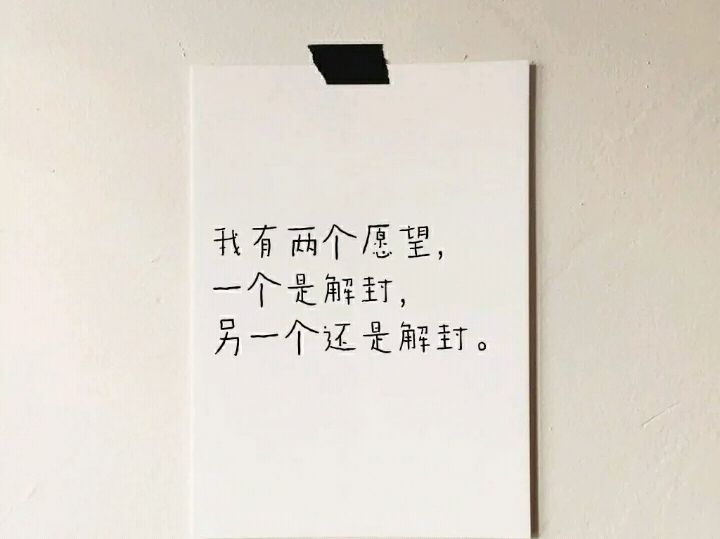 我有两个愿望，
一个是解封，
另一个还是解封。